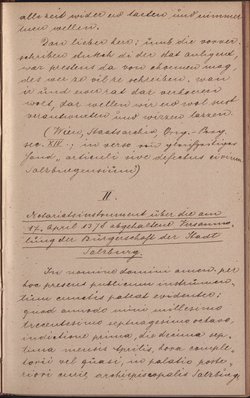 allezeit wider ew taeten und nimmer
tuen wellen.
Van lieber herr; umb die vorver-
schriben stukch di der dat anligend
war pestens da von chomen mag,
des wer ze vil ze schreiben. wan
ir und ewr rat dar
wolt, dar wellen wir ew wol
verantwurten und wissen lassen.
(Wien, Staatsarchiv, Orig.-Pap.
sec. XIV.; in verso von gleichzeitiger
Hand, articuli sive defectus civium
Salzburgensium)
II.
Notariatsinstrument über die am
17. April 1378 abgehaltene Versamm-
lung der Bürgerschaft der Stadt
Salzburg.
In nomine domini amen. per
hoc presens publicum instrumen-
tum cunctis pateat evidenter;
quod anno domini millesimo
trecentesimo septuagesimo octavo,
indictione prima, die decima sep-
tima mensis Aprilis, hora comple-
torii vel quasi, in palatio poste-
riori curie archiepiscopalis Salzburg.